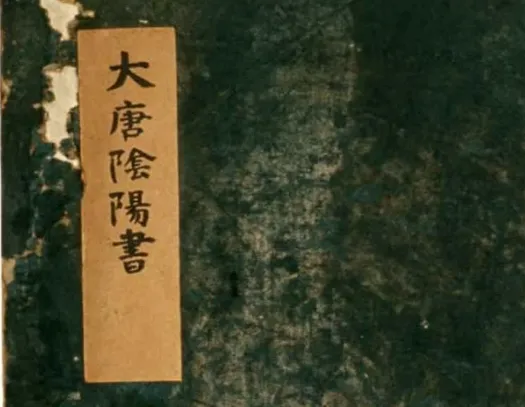 大唐陰陽書